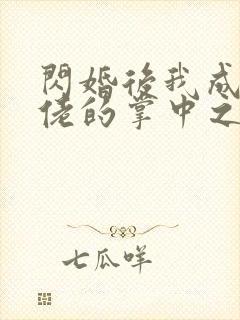 閃婚後我成
佬的掌中之
七瓜咩